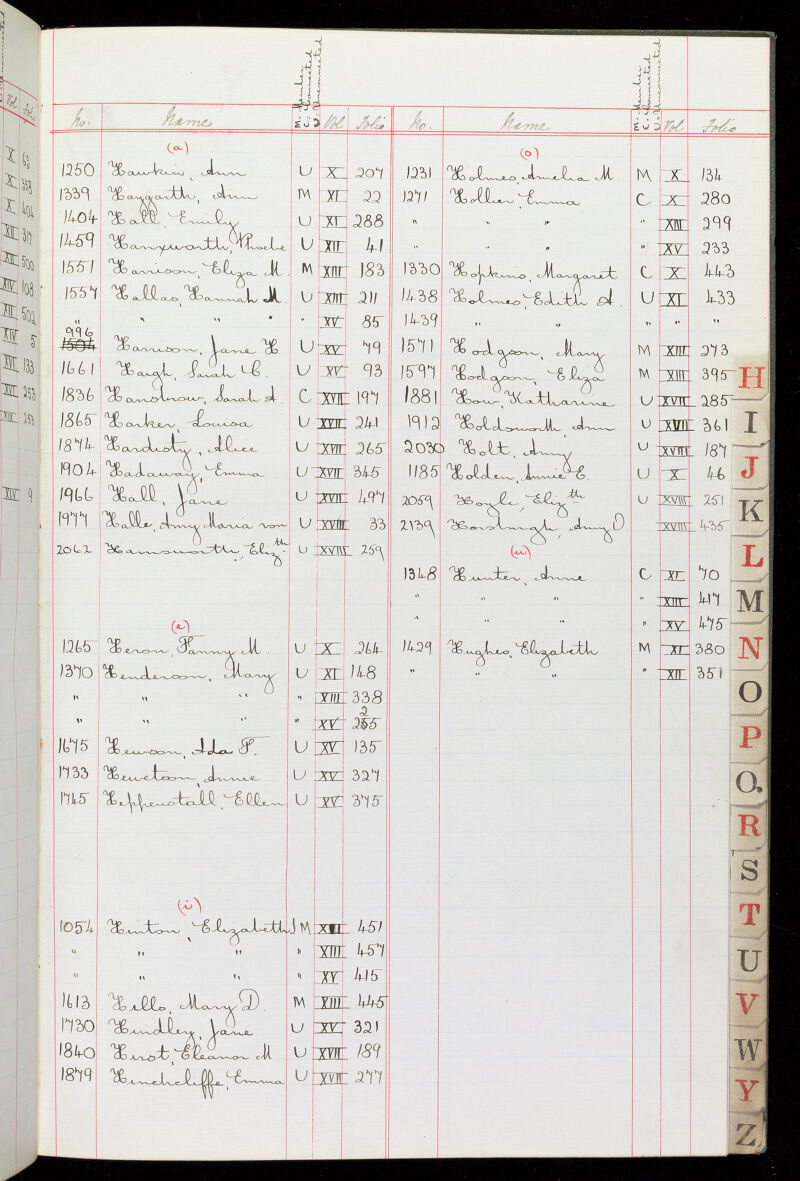 No. Name Vol Folio
(a)
1250 Hawkin, Ann U X 207
1339 Haygarth, Ann M XI 22
1404 Hall, Emily U XI 288
1459 Hanxwarth, Phoebe U XII 41
1551 Harrison, Eliza M. M XIII 183
1557 Hallas, Hannah M. U XIII 211
" " " " " XV 85
996
1504 Harrison, Jane H U XV 79
1661 Haigh, Sarah C. U XV 93
1836 Sarah A. C XVII 197
1865 Harker, Louisa U XVII 241
1874 Hardisty, Alice U XVII 265
1904 Hadaway, Emma U XVII 345
1966 Hall, Jane U XVII 497
1977 Halle, Amy Maria von U XVIII 33
2062 Hainsworth, Elizth U XVIII 259
(e)
1265 Heron, Fanny M. U X 264
1370 Henderson, Mary U XI 148
" " " " XIII 338
" " " " XV 255
2
1675 Hewson, Ada F. U XV 135
1733 Hewetson, Annie U XV 327
1745 Heppenstall, Ellen U XV 375
(i)
1054 Hinton, Elizabeth J M 451
" " " " XIII 457
" " " " XV 415
1613 Hills, Mary D. M XIII 445
1730 Hindley, Jane U XV 321
1840 Hirst, Eleanor M U XVII 189
1879 Hinchcliffe, Emma U XVII 277
M. Member
C. Nominated
U. Unconnected
No. Name Vol Folio
(o)
1231 Holmes, Amelia M M X 134
1271 Hollier, Emma C X 280
" " " " XIII 299
" " " " XV 233
1330 Hopkins, Margaret C X 443
1438 Holmes, Edith A. U XI 433
1439 " " " " "
1571 Hodgson, Mary M XIII 273
1597 Hodgson, Eliza M XIII 395
1881 How, Katharine U XVII 285
1912 Holdsworth, Ann U XVII 361
2030 Holt, Amy U XVIII 187
1185 Holden, Annie E. U X 46
2059 Hoyle, Elizth U XVIII 251
2139 Horsburgh, Amy D XVIII 435
(u)
1348 Hunter, Anne C XI 70
" " " " XIII 417
" " " " XV 475
1429 Hughes, Elizabeth M XI 380
" " " " XII 351
H
I
J
K
L
M
N
O
P
Q.
R
S
T
U
V
W
Y
Z
Vol Folio
X 63
X 353
X 404
XII 317
XII 500
XIV 108
XII 502
XIV 5
XVI 133
XVI 253
XIX 253
XIV 9